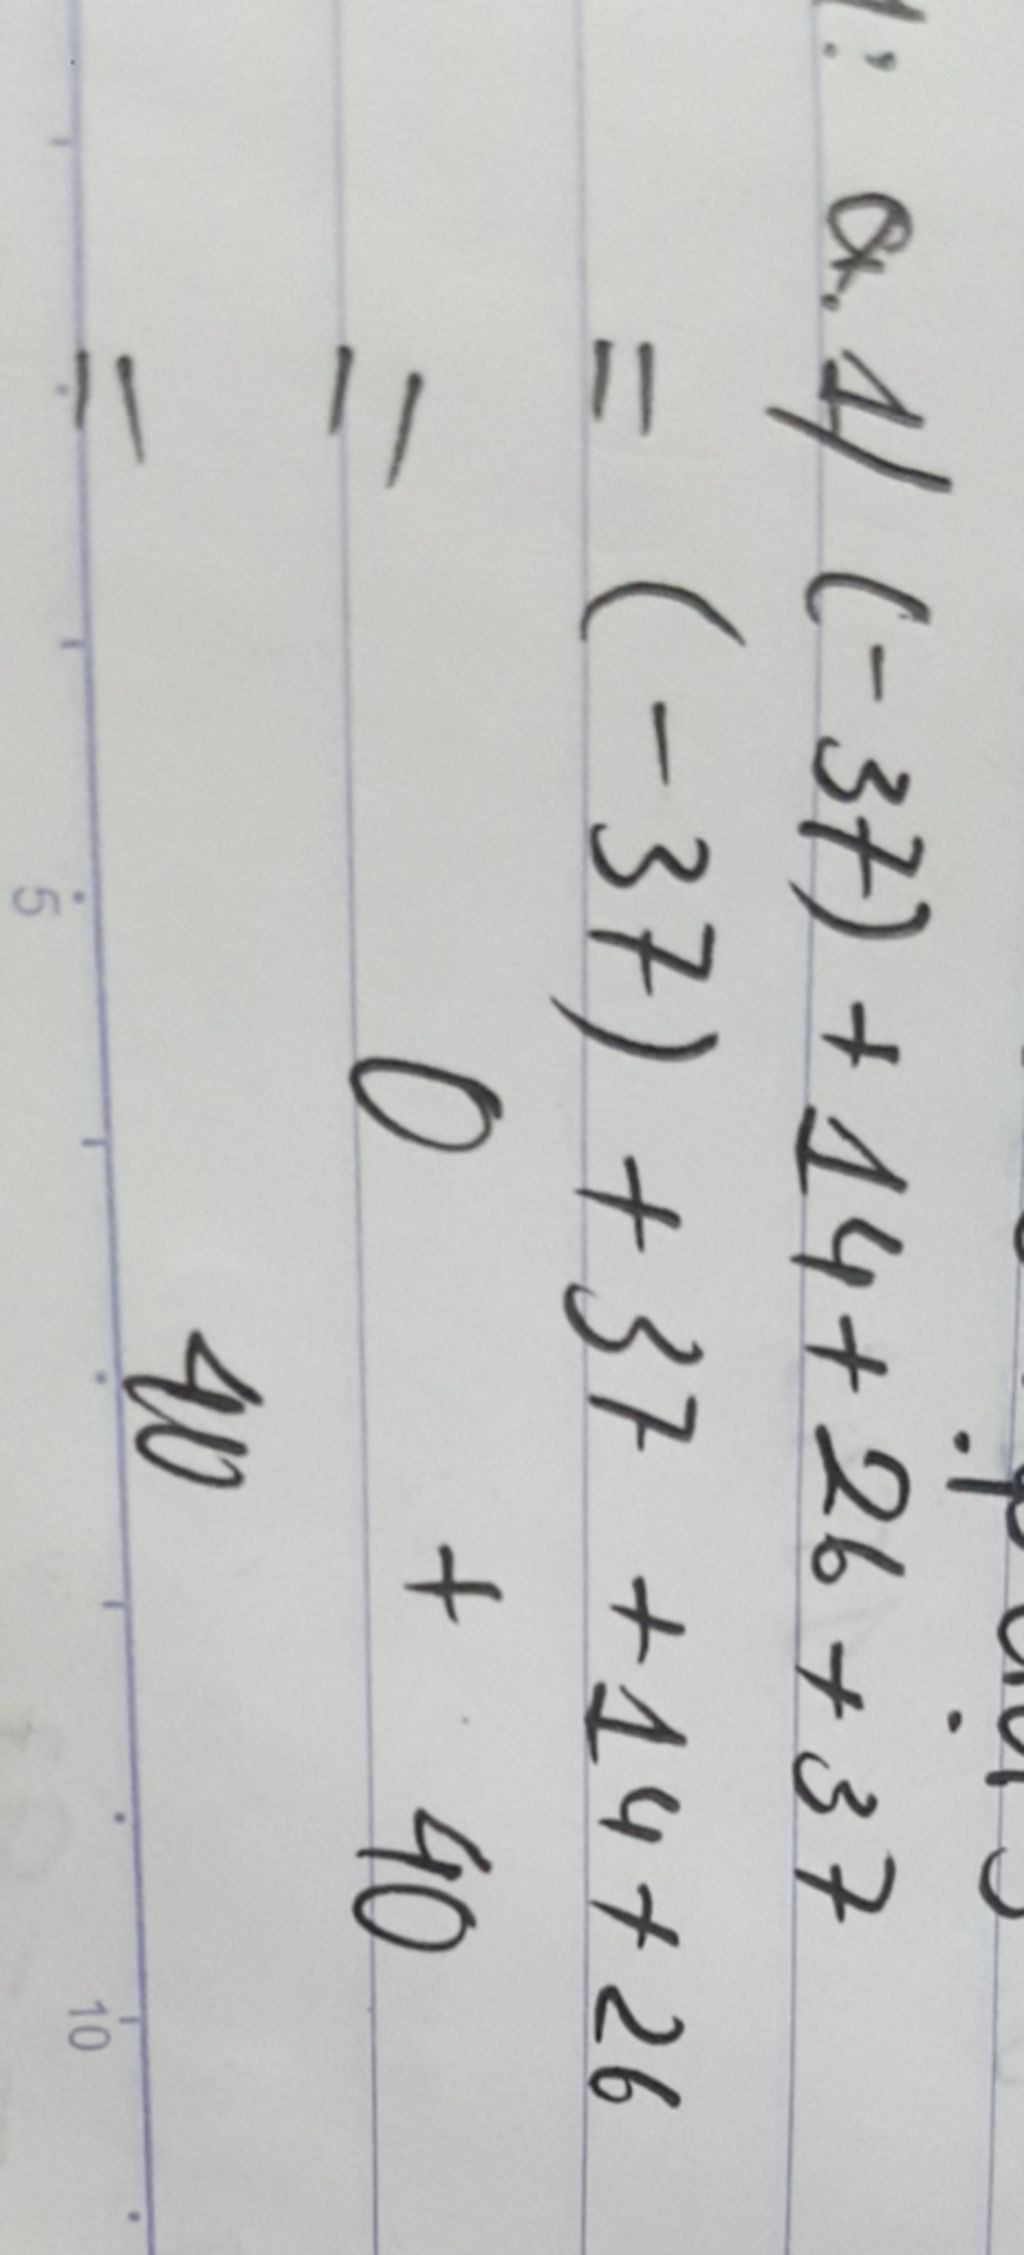 1: a. 1/ (-37) + 14 + 26 + 37
= (-37) + 37 + 14 + 26
= 0 + 40
= 40
5 10